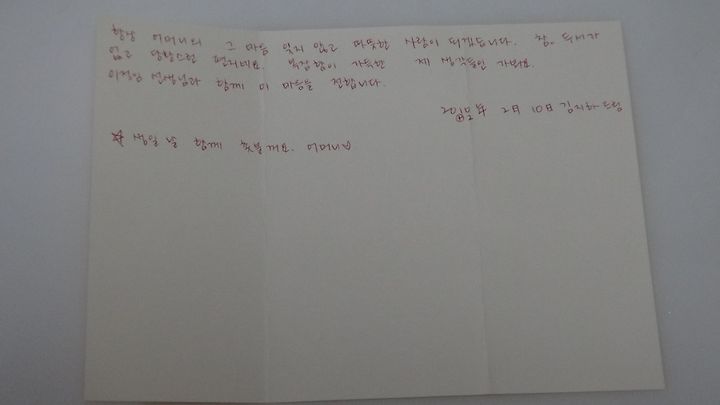 항상 어머니의 그 마음 잊지 않고 따뜻한 사람이 되겠습니다. 참. 두서가
없고 당황스런 편지네요. 복잡함이 가득한 제 생각들인 가봐요.
이정님 선생님과 함께 이 마음을 전합니다.
2월 10일 김지하 드림
☆ 생일 날 함께 촛불 께요. 어머니